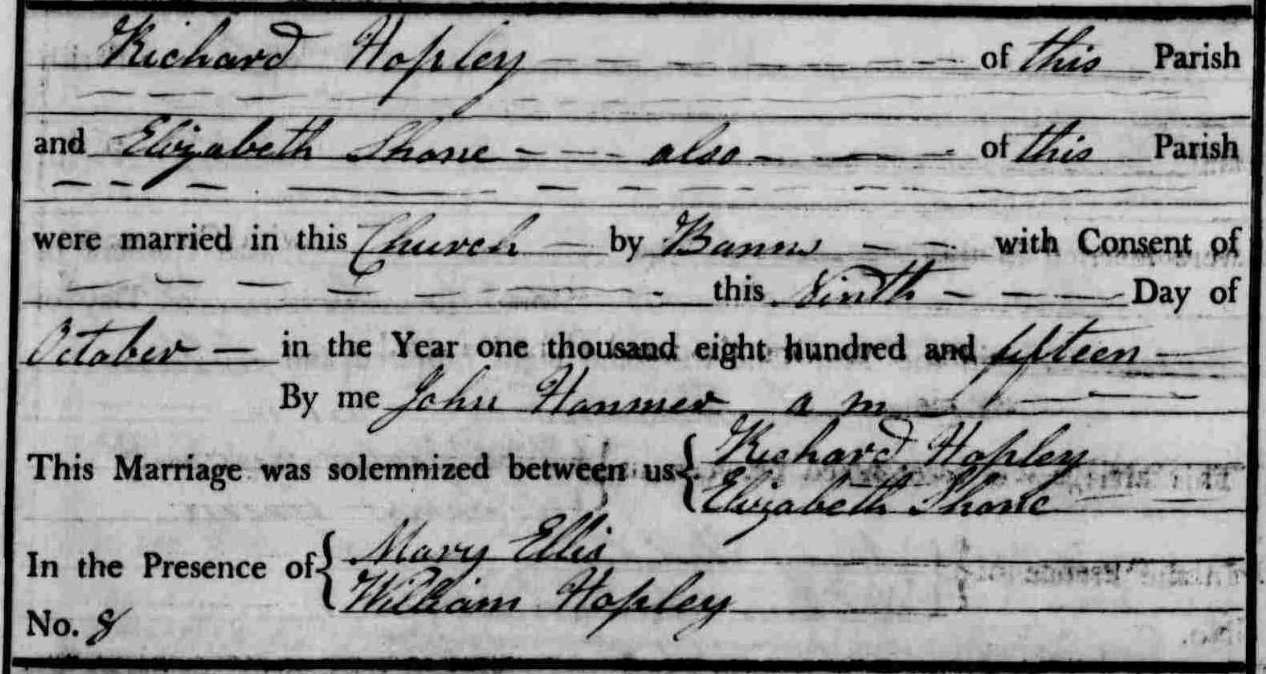 Richard Hopley of this Parish
and Elizabeth Shone also of this Parish
were married in this Church by Banns with Consent of
this Ninth Day of
October in the Year one thousand eight hundred and fifteen
By me John Hanmer a m
This Marriage was solemnized between us { Richard Hopley
Elizabeth Shone
In the Presence of { Mary Ellis
William Hopley
No. 8